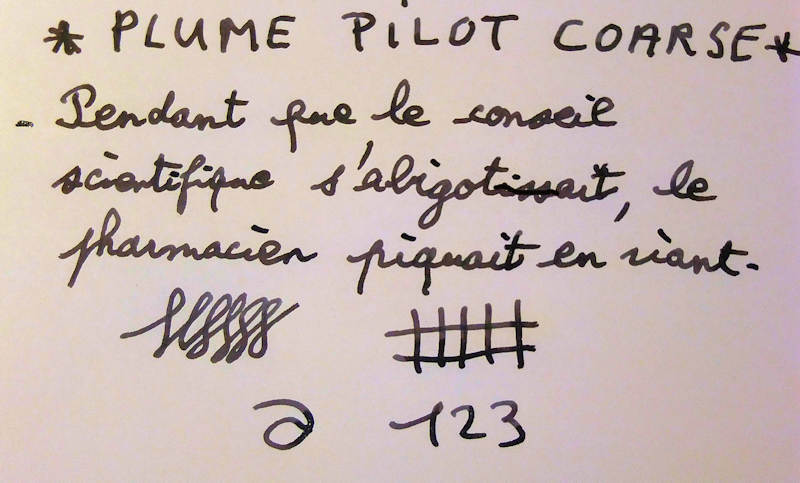 * PLUME PILOT COARSE *
- Pendant que le conseil
scientifique s'abigotissait, le
pharmacien piquait en riant.
∂ 123